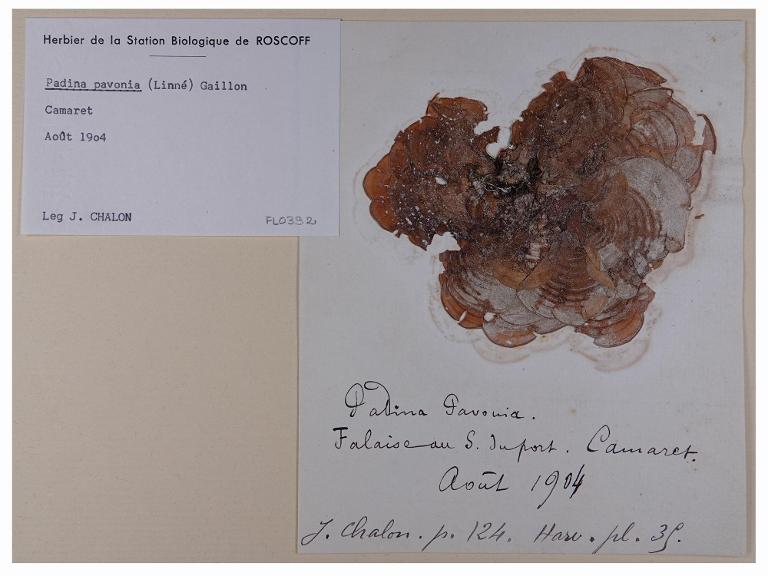 Herbier de la Station Biologique de ROSCOFF
Padina pavonia (Linné) Gaillon
Camaret
Août 19o4
Leg J. CHALON
FL0392
Padina Pavonia.
Falaise au S. du port. Camaret.
Août 1904
J. Chalon. p. 124. Harv. pl. 39.